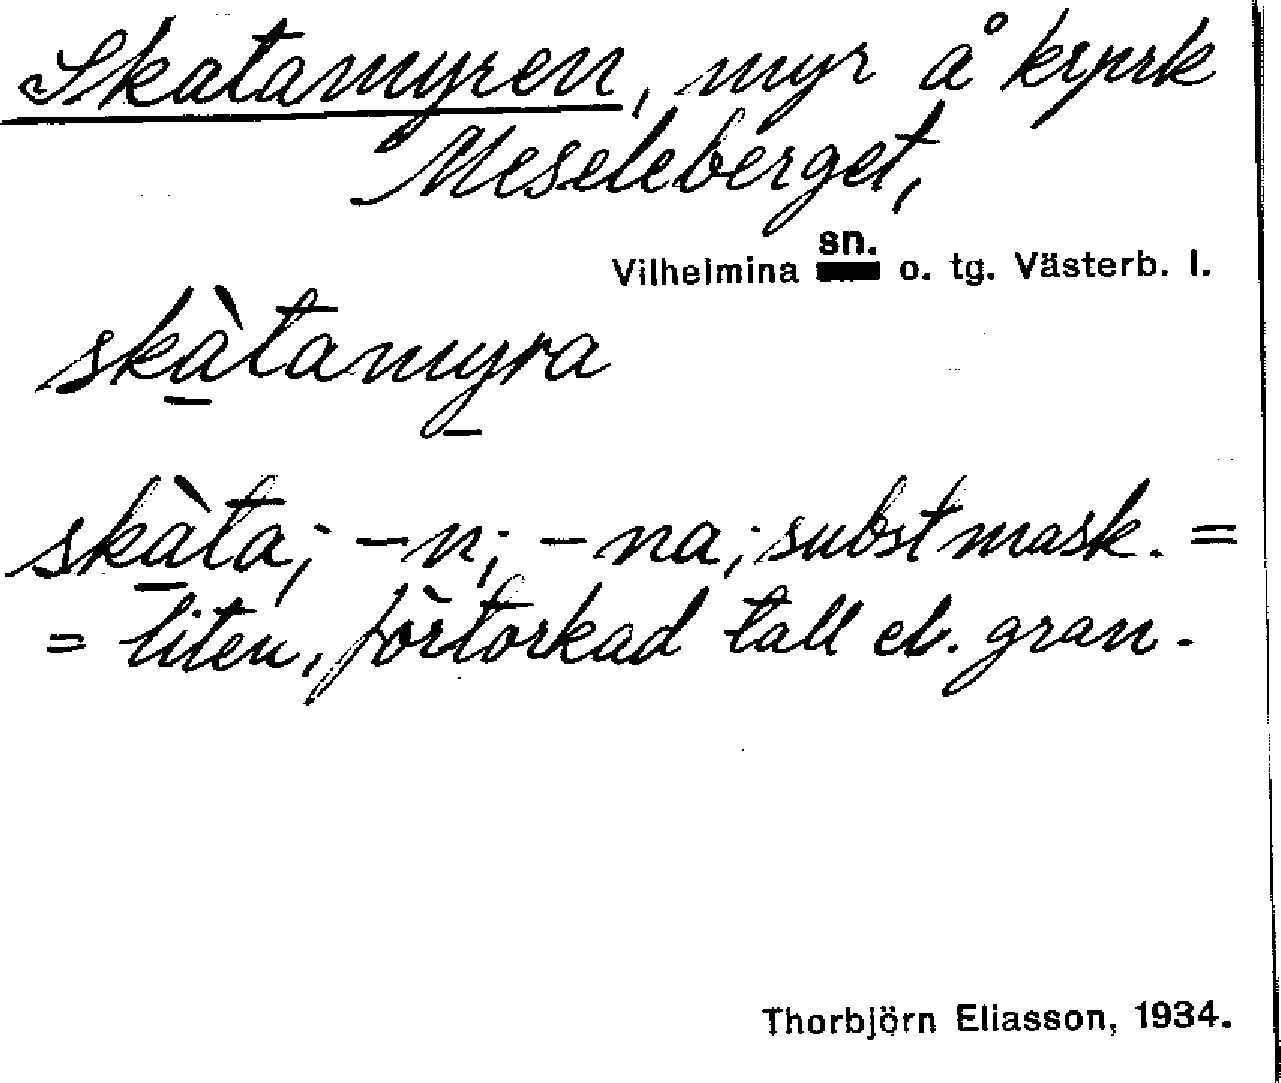 Skatamyren, myr å krprk
Meseleberget,
sn.
Vilhelmina o. tg. Västerb. l.
skàtamyra
skàta; -n; -na; subst mask. =
= liten, förtorkad tall el. gran.
Thorbjörn Eliasson, 1934.